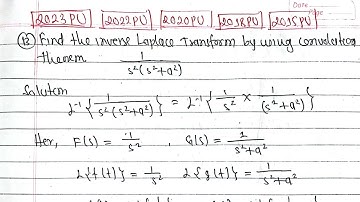 Date
Page
2023PU 2022PU 2020PU 2018PU 2015PU
(13) Find the inverse Laplace Transform by using convolution
theorem 1/s²(s²+a²)
Solution
L⁻¹{1/s²(s²+a²)} = L⁻¹{1/s² × 1/(s²+a²)}
Her, F(s) = 1/s² , G(s) = 1/s²+a²
L{f(t)} = 1/s² L{g(t)} = 1/s²+a²